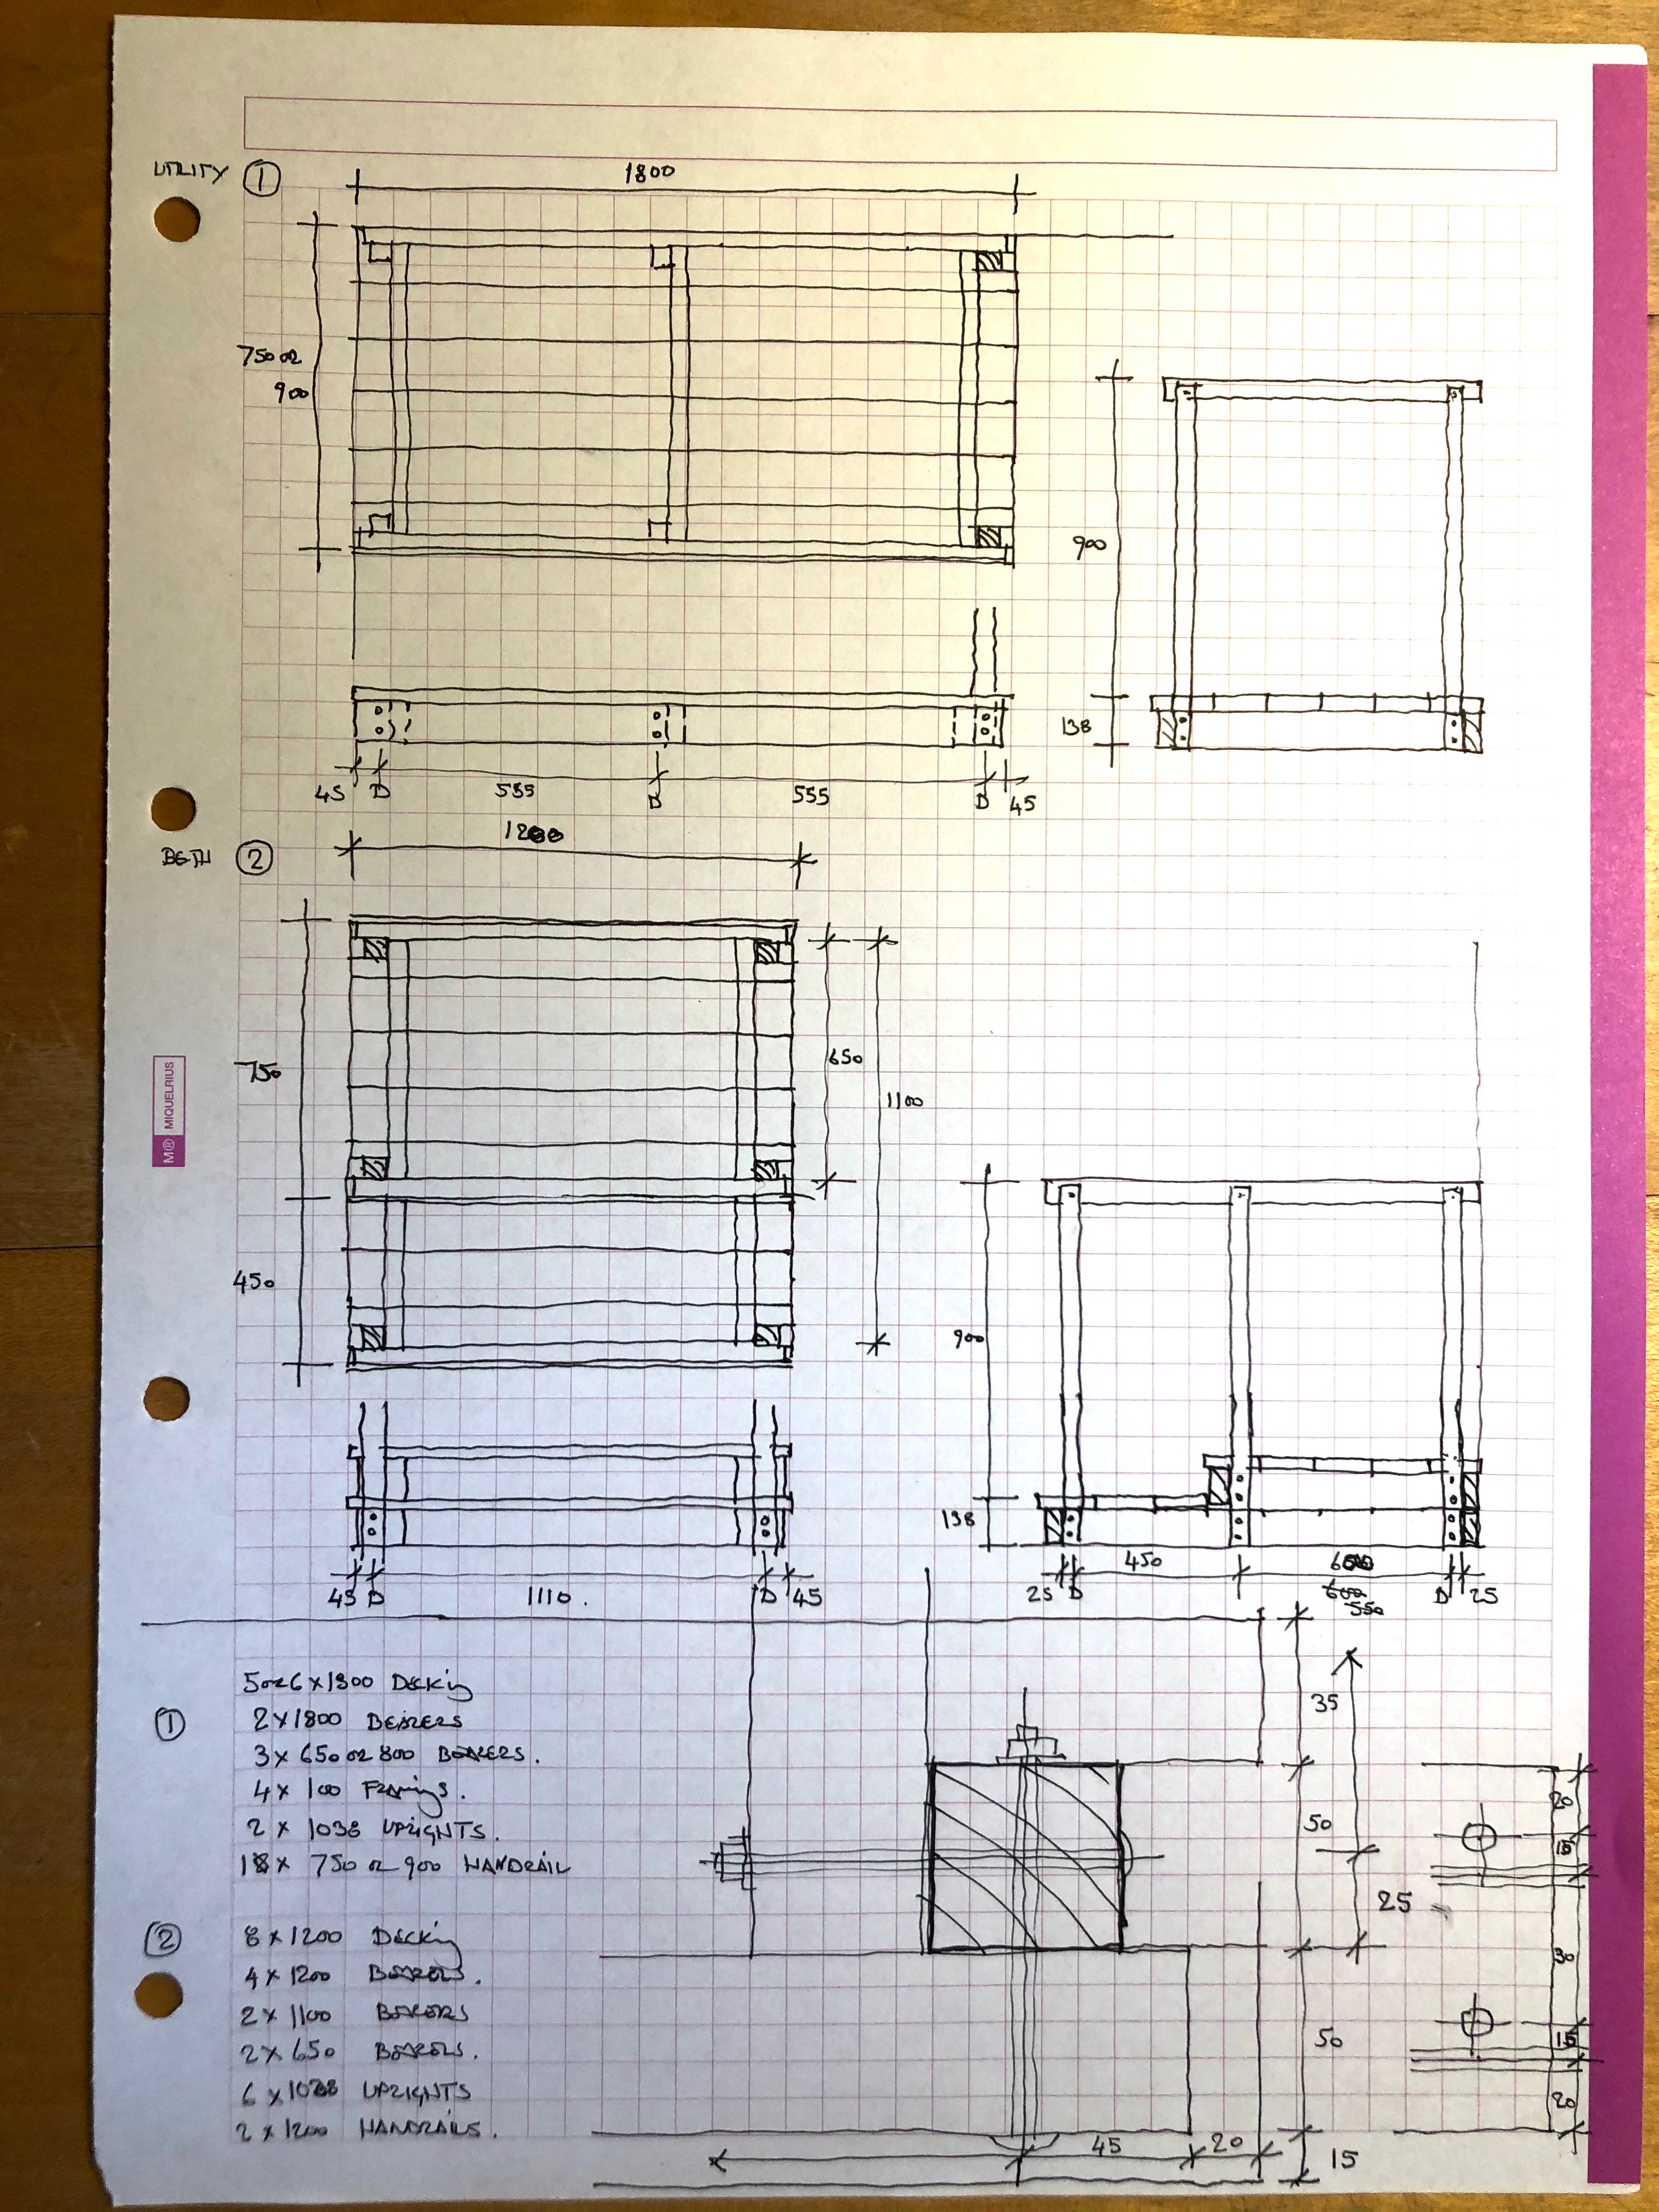 UTILITY ①
1800
750 or
900
900
138
45 D 555 D 555 D 45
BOTH ②
1200
750
650
1100
450
M® MIQUELRIUS
900
138
45 D 1110. D 45
25 D 450 600 D 25
600
550
①
5 or 6 x 1800 Decking
2 x 1800 BEARERS
3 x 650 or 800 BEARERS.
4 x 100 Fixings.
2 x 1038 UPRIGHTS.
1 x 750 or 900 HANDRAIL
②
8 x 1200 Decking
4 x 1200 BEARERS.
2 x 1100 BEARERS
2 x 650 BEARERS.
6 x 1038 UPRIGHTS
2 x 1200 HANDRAILS.
35
50
25
50
45 20
15
20
15
30
15
20